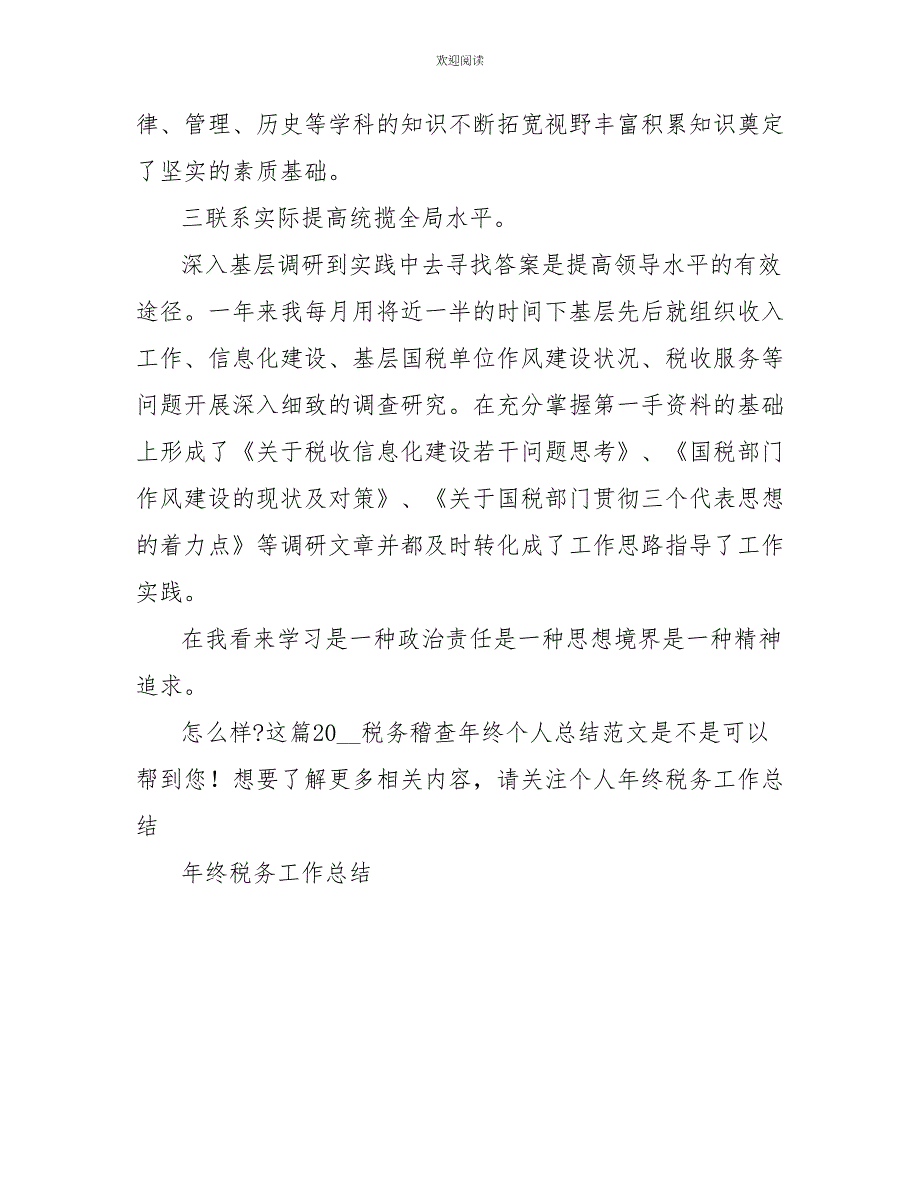 欢迎阅读
律、管理、历史等学科的知识不断拓宽视野丰富积累知识奠定
了坚实的素质基础。
三联系实际提高统揽全局水平。
深入基层调研到实践中去寻找答案是提高领导水平的有效
途径。一年来我每月用将近一半的时间下基层先后就组织收入
工作、信息化建设、基层国税单位作风建设状况、税收服务等
问题开展深入细致的调查研究。在充分掌握第一手资料的基础
上形成了《关于税收信息化建设若干问题思考》、《国税部门
作风建设的现状及对策》、《关于国税部门贯彻三个代表思想
的着力点》等调研文章并都及时转化成了工作思路指导了工作
实践。
在我看来学习是一种政治责任是一种思想境界是一种精神
追求。
怎么样?这篇20__税务稽查年终个人总结范文是不是可以
帮到您！想要了解更多相关内容，请关注个人年终税务工作总
结
年终税务工作总结